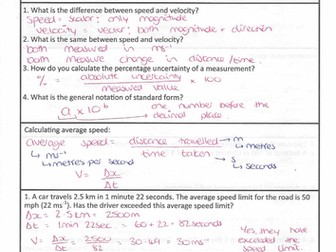 1. What is the difference between speed and velocity?
Speed = scalar; only magnitude
velocity = vector; both magnitude + direction
2. What is the same between speed and velocity?
both measured in ms⁻¹
both measure change in distance/time.
3. How do you calculate the percentage uncertainty of a measurement?
% = absolute uncertainty × 100
measured value
4. What is the general notation of standard form?
a × 10ᵇ one number before the
decimal place
Calculating average speed:
average speed = distance travelled → m
↳ ms⁻¹ time taken ↳ metres
↳ metres per second ↳ s
V = Δx ↳ seconds
Δt
1. A car travels 2.5 km in 1 minute 22 seconds. The average speed limit for the road is 50
mph (22 ms⁻¹). Has the driver exceeded this average speed limit?
Δx = 2.5km = 2500m
Δt = 1min 22sec = 60 + 22 = 82 seconds
V = Δx = 2500 = 30.49 = 30ms⁻¹
Δt 82
Yes, they have
exceeded the
speed limit